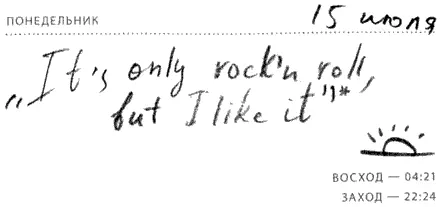 ПОНЕДЕЛЬНИК
15 июля
„It's only rock'n roll,
but I like it"*
ВОСХОД — 04:21
ЗАХОД — 22:24